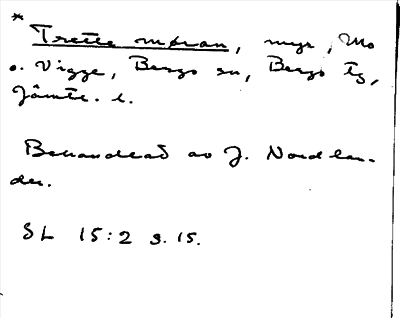 * Trette møran, myr, Mo
o. Vigge, Bergs sn, Bergs tg,
Jämtl. l.
Behandlad av J. Nordlan-
der.
SL 15:2 s. 15.